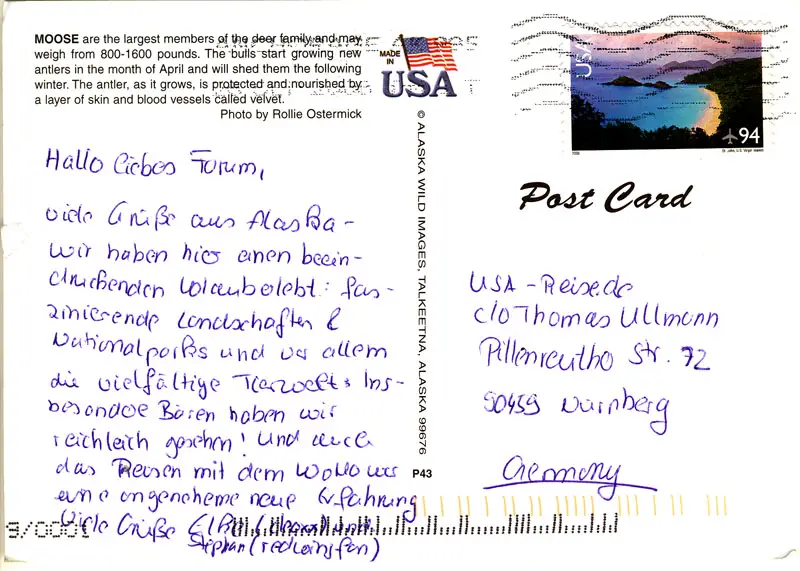 MOOSE are the largest members of the deer family and may
weigh from 800-1600 pounds. The bulls start growing new
antlers in the month of April and will shed them the following
winter. The antler, as it grows, is protected and nourished by
a layer of skin and blood vessels called velvet.
Photo by Rollie Ostermick
MADE
IN
USA
© ALASKA WILD IMAGES, TALKEETNA, ALASKA 99676
P43
USA
94
Post Card
Hallo liebes Forum,
viele Grüße aus Alaska -
wir haben hier einen beein-
druckenden Urlaub erlebt: fas-
zinierende Landschaften &
Nationalparks und vor allem
die vielfältige Tierwelt. Ins-
besondere Bären haben wir
reichleich gesehen! Und auch
das Reisen mit dem WoMo war
eine angenehme neue Erfahrung
Viele Grüße
Stephan
USA-Reise.de
c/o Thomas Ullmann
Pillenreuther Str. 72
90459 Nürnberg
Germany